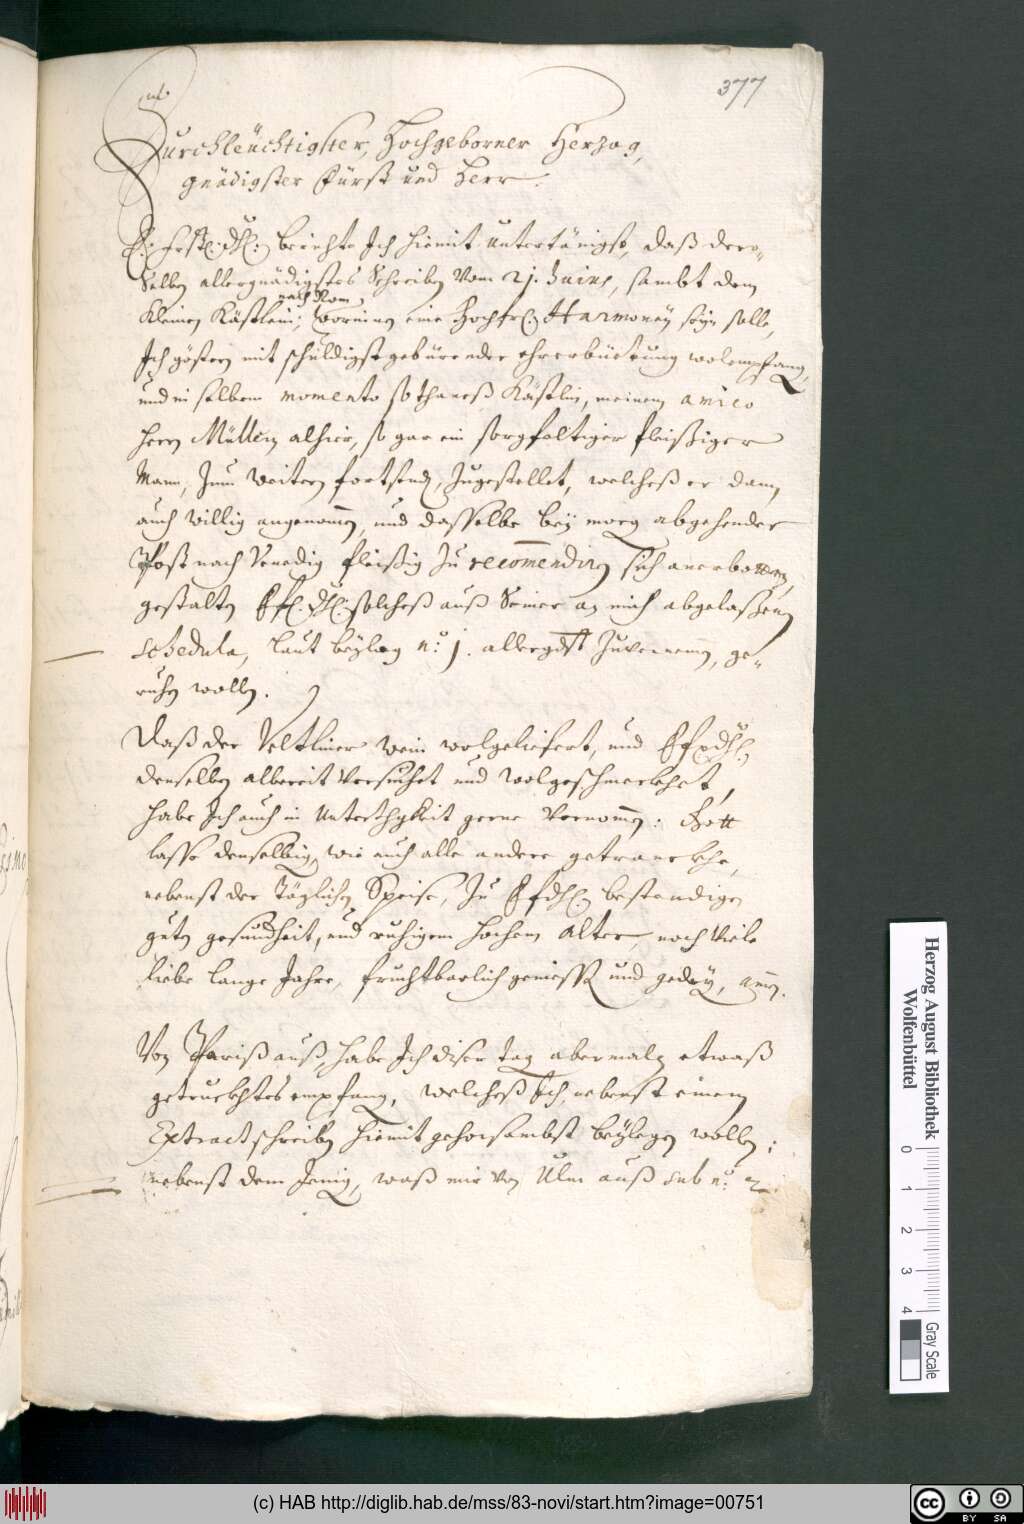 377
Durchleüchtigster, Hochgeborner Herzog,
gnädigster Fürst und Herr.
E. Frstl. Dl. berichte Ich hiemit untertänigst, daß dero-
selben allergnädigstes Schreiben vom 21. Junii, sambt dem
nach Rom
kleinen Kästlein, worinnen eine Hochfr. Harmoney seyn solle,
Ich gestern mit schuldigst gebürender ehrerbüetung wol empfang,
und in selbem momento sothaneß Kästlin, meinem amico
Herrn Müller alhier, so gar ein sorgfaltiger fleißiger
Mann, zum weitern fortsend, zugestellet, welcheß er dann
auch willig angenommen, und dasselbe bey morg abgehender
Post nach Venedig fleißig zu recommendiren sich anerbotten,
gestalten E fl. Dl. solcheß auß seiner an mich abgelaßenen
schedula, laut beylag n.o 1. allergdst zuvernemen, ge-
ruhen wollen.
Daß der Veltliner wein wolgeliefert, und E fr Dl.
denselben albereit versuchet und wolgeschmeckhet,
habe Ich auch in unterthgkeit gerne vernommen: Gott
lasse denselbigen, wie auch alle andere getranckhe,
nebenst der täglichen Speise, zu E f dl. bestendigen
guten gesundheit, und ruhigem hochem alter, noch viele
liebe lange Jahre, fruchtbarlich genießen und gedey, amen.
Von Pariß auß, habe Ich diser tag abermaln etwaß
getruckhtes empfang, welcheß Ich, nebenst einem
Extract schreiben hiemit gehorsambst beylegen wollen;
nebenst dem Jenig, waß mir von Ulm auß sub n.o 2.
Herzog August Bibliothek
Wolfenbüttel
0 1 2 3 4
Gray Scale
(c) HAB http://diglib.hab.de/mss/83-novi/start.htm?image=00751
cc BY SA